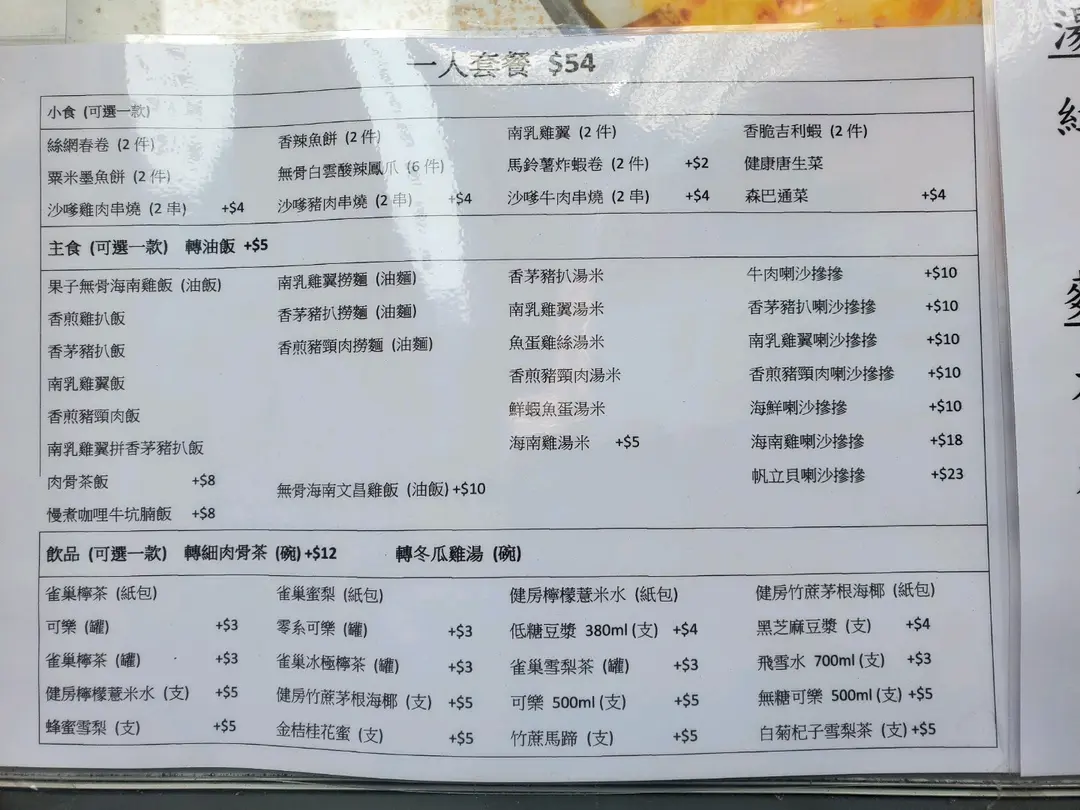 一人套餐 $54
小食 (可選一款)
絲網春卷 (2 件) 香辣魚餅 (2 件) 南乳雞翼 (2 件) 香脆吉利蝦 (2 件)
粟米墨魚餅 (2 件) 無骨白雲酸辣鳳爪 (6 件) 馬鈴薯炸蝦卷 (2 件) +$2 健康唐生菜
沙嗲雞肉串燒 (2 串) +$4 沙嗲豬肉串燒 (2 串) +$4 沙嗲牛肉串燒 (2 串) +$4 森巴通菜 +$4
主食 (可選一款) 轉油飯 +$5
果子無骨海南雞飯 (油飯) 南乳雞翼撈麵 (油麵) 香茅豬扒湯米 牛肉喇沙摻摻 +$10
香煎雞扒飯 香茅豬扒撈麵 (油麵) 南乳雞翼湯米 香茅豬扒喇沙摻摻 +$10
香茅豬扒飯 香煎豬頸肉撈麵 (油麵) 魚蛋雞絲湯米 南乳雞翼喇沙摻摻 +$10
南乳雞翼飯 香煎豬頸肉湯米 香煎豬頸肉喇沙摻摻 +$10
香煎豬頸肉飯 鮮蝦魚蛋湯米 海鮮喇沙摻摻 +$10
南乳雞翼拼香茅豬扒飯 海南雞湯米 +$5 海南雞喇沙摻摻 +$18
肉骨茶飯 +$8 無骨海南文昌雞飯 (油飯) +$10 帆立貝喇沙摻摻 +$23
慢煮咖哩牛坑腩飯 +$8
飲品 (可選一款) 轉細肉骨茶 (碗) +$12 轉冬瓜雞湯 (碗)
雀巢檸茶 (紙包) 雀巢蜜梨 (紙包) 健房檸檬薏米水 (紙包) 健房竹蔗茅根海椰 (紙包)
可樂 (罐) +$3 零系可樂 (罐) +$3 低糖豆漿 380ml (支) +$4 黑芝麻豆漿 (支) +$4
雀巢檸茶 (罐) +$3 雀巢冰極檸茶 (罐) +$3 雀巢雪梨茶 (罐) +$3 飛雪水 700ml (支) +$3
健房檸檬薏米水 (支) +$5 健房竹蔗茅根海椰 (支) +$5 可樂 500ml (支) +$5 無糖可樂 500ml (支) +$5
蜂蜜雪梨 (支) +$5 金桔桂花蜜 (支) +$5 竹蔗馬蹄 (支) +$5 白菊杞子雪梨茶 (支) +$5